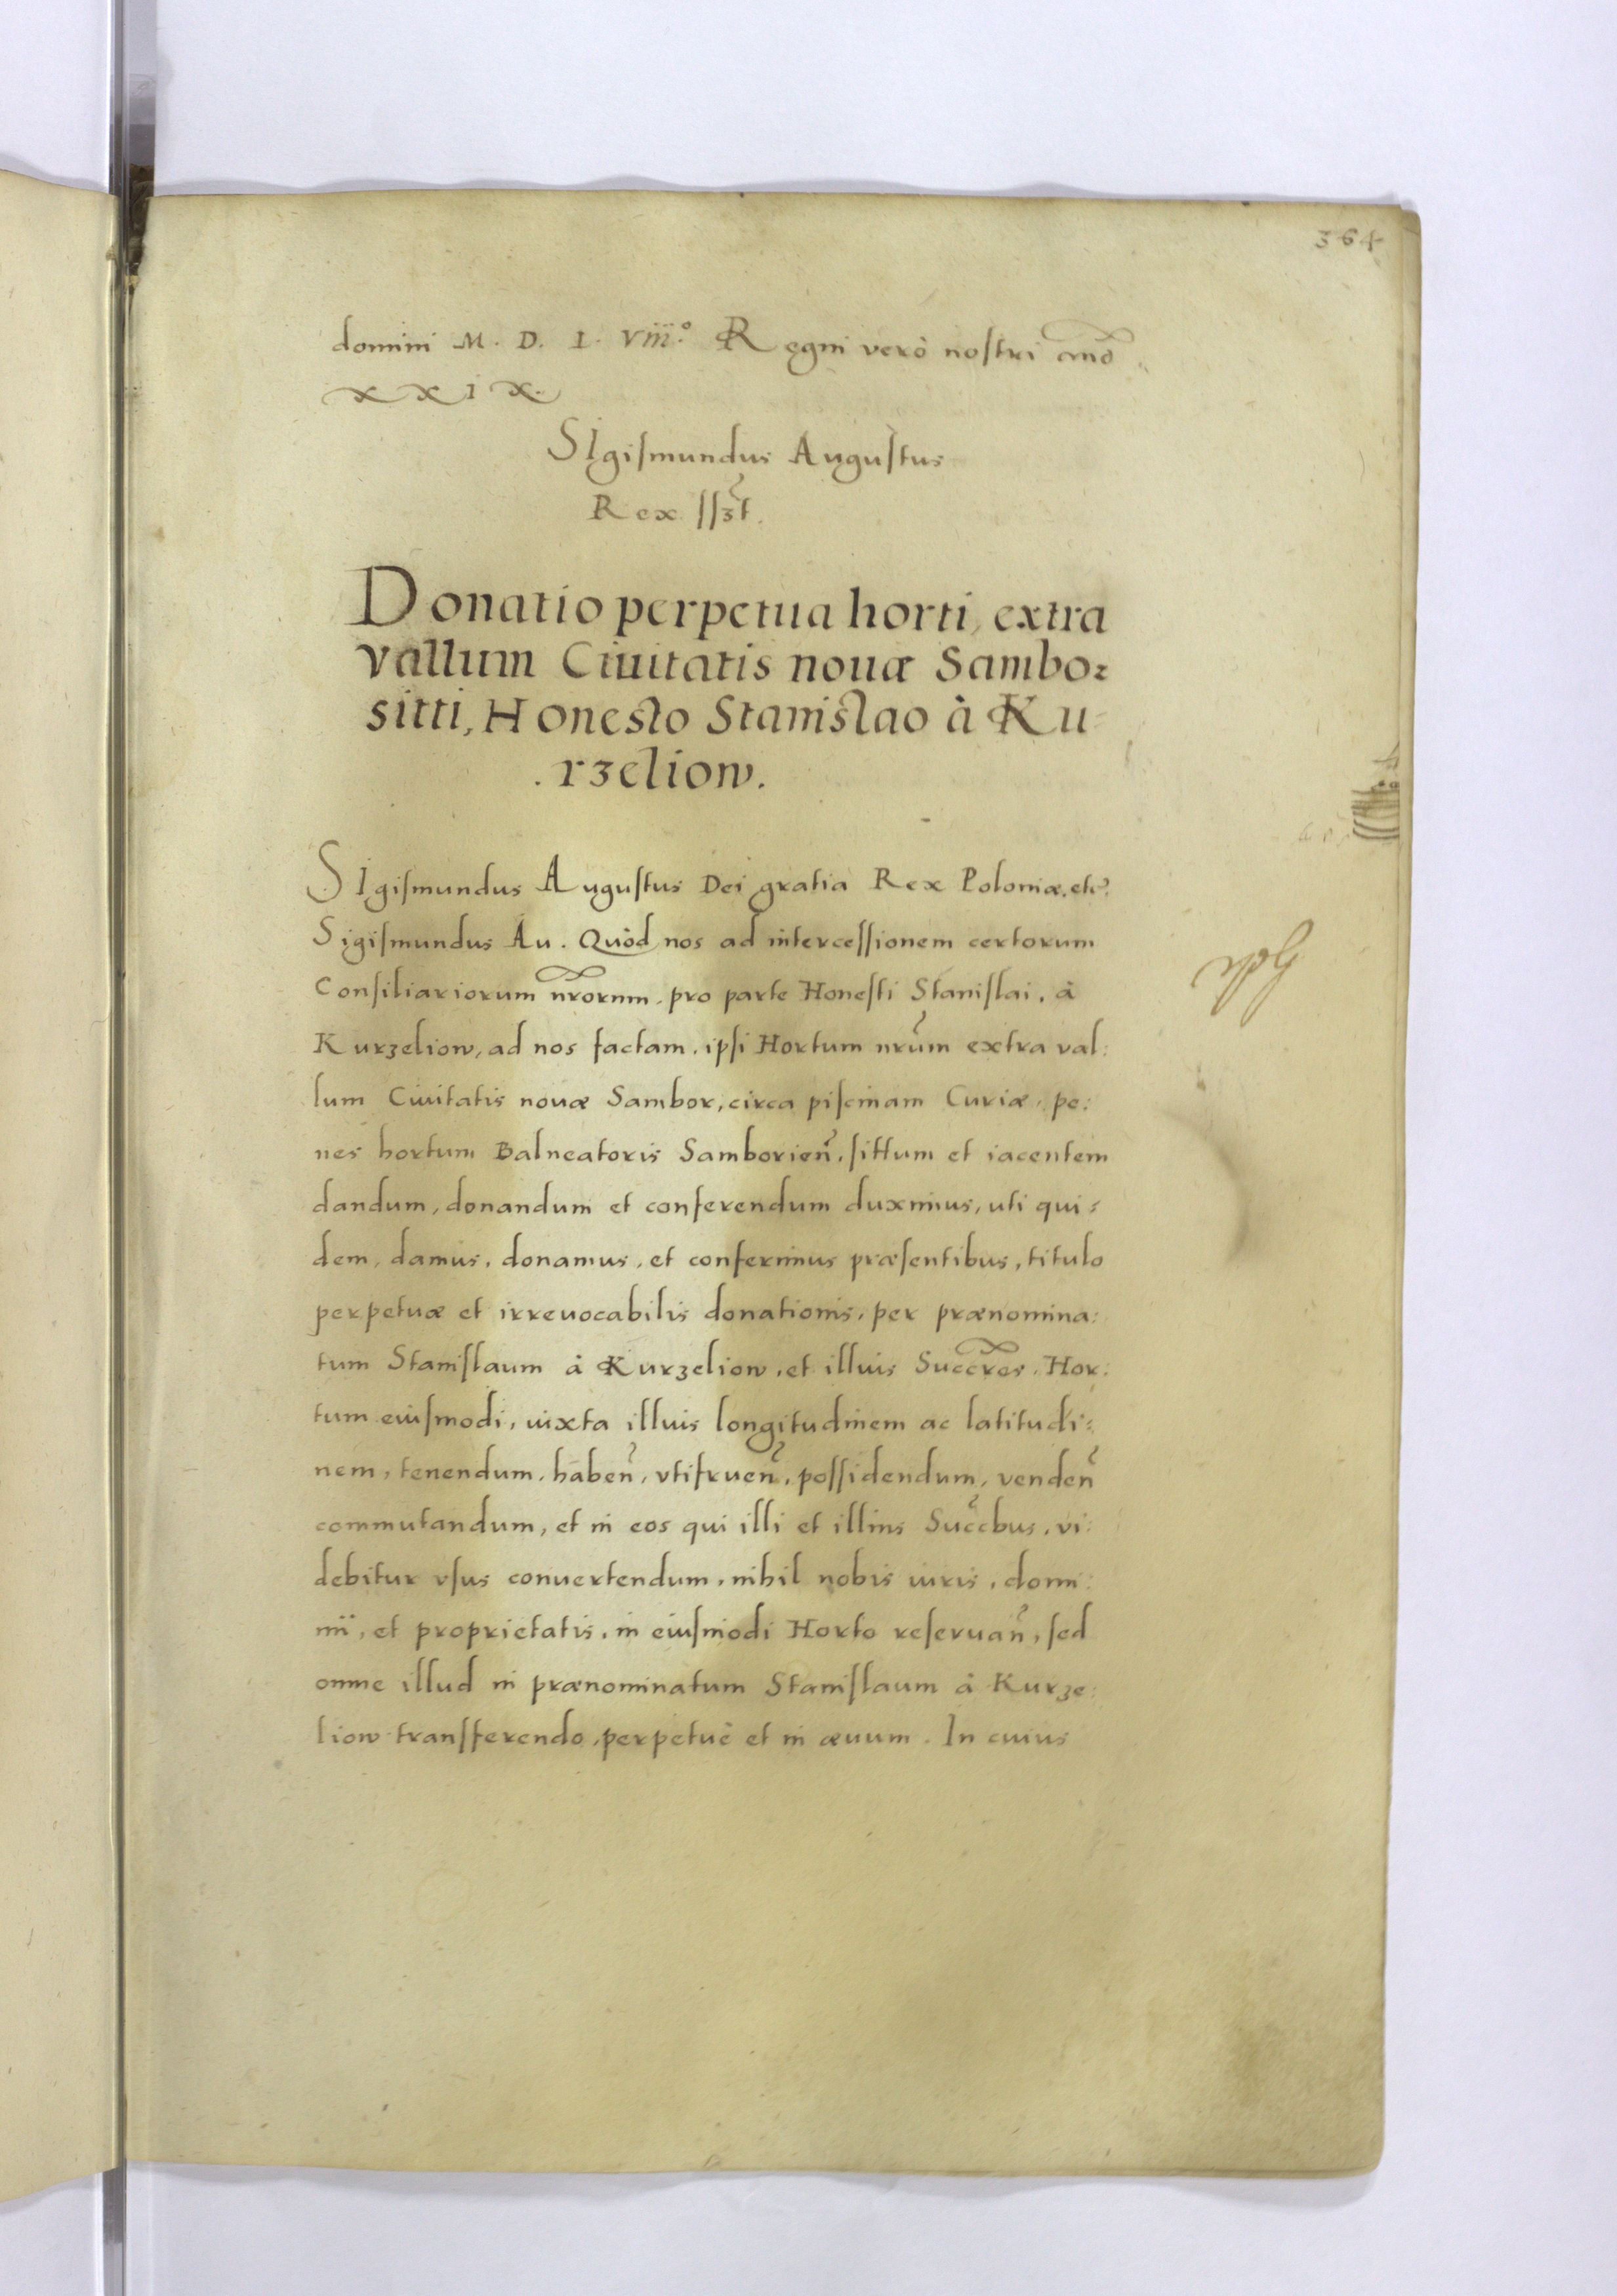 364
domini M. D. L. Viii.º Regni verò nostri anno
XXIX.
SIgismundus Augustus
Rex sszt.
Donatio perpetua horti, extra
vallum Ciuitatis nouæ Sambo:
sitti, Honesto Stanislao à Ku=
rzeliow.
SIgismundus Augustus Dei gratia Rex Poloniæ. etc.
Sigismundus Au. Quòd nos ad intercessionem certorum
Consiliariorum nrorum, pro parte Honesti Stanislai, à
Kurzeliow, ad nos factam, ipsi Hortum nrum extra val:
lum Ciuitatis nouæ Sambor, circa piscinam Curiæ, pe:
nes hortum Balneatoris Samborien, sittum et iacentem
dandum, donandum et conferendum duximus, uti qui=
dem, damus, donamus, et conferimus præsentibus, titulo
perpetuæ et irreuocabilis donationis, per prænomina:
tum Stanislaum à Kurzeliow, et illius Succres, Hor:
tum eiusmodi, iuxta illius longitudinem ac latitudi:
nem, tenendum, haben, vtifruen, possidendum, venden
commutandum, et in eos qui illi et illius Succbus, vi:
debitur vsus conuertendum, nihil nobis iuris, domi:
nii, et proprietatis, in eiusmodi Horto reseruan, sed
omne illud in prænominatum Stanislaum à Kurze:
liow transferendo, perpetuè et in æuum. In cuius